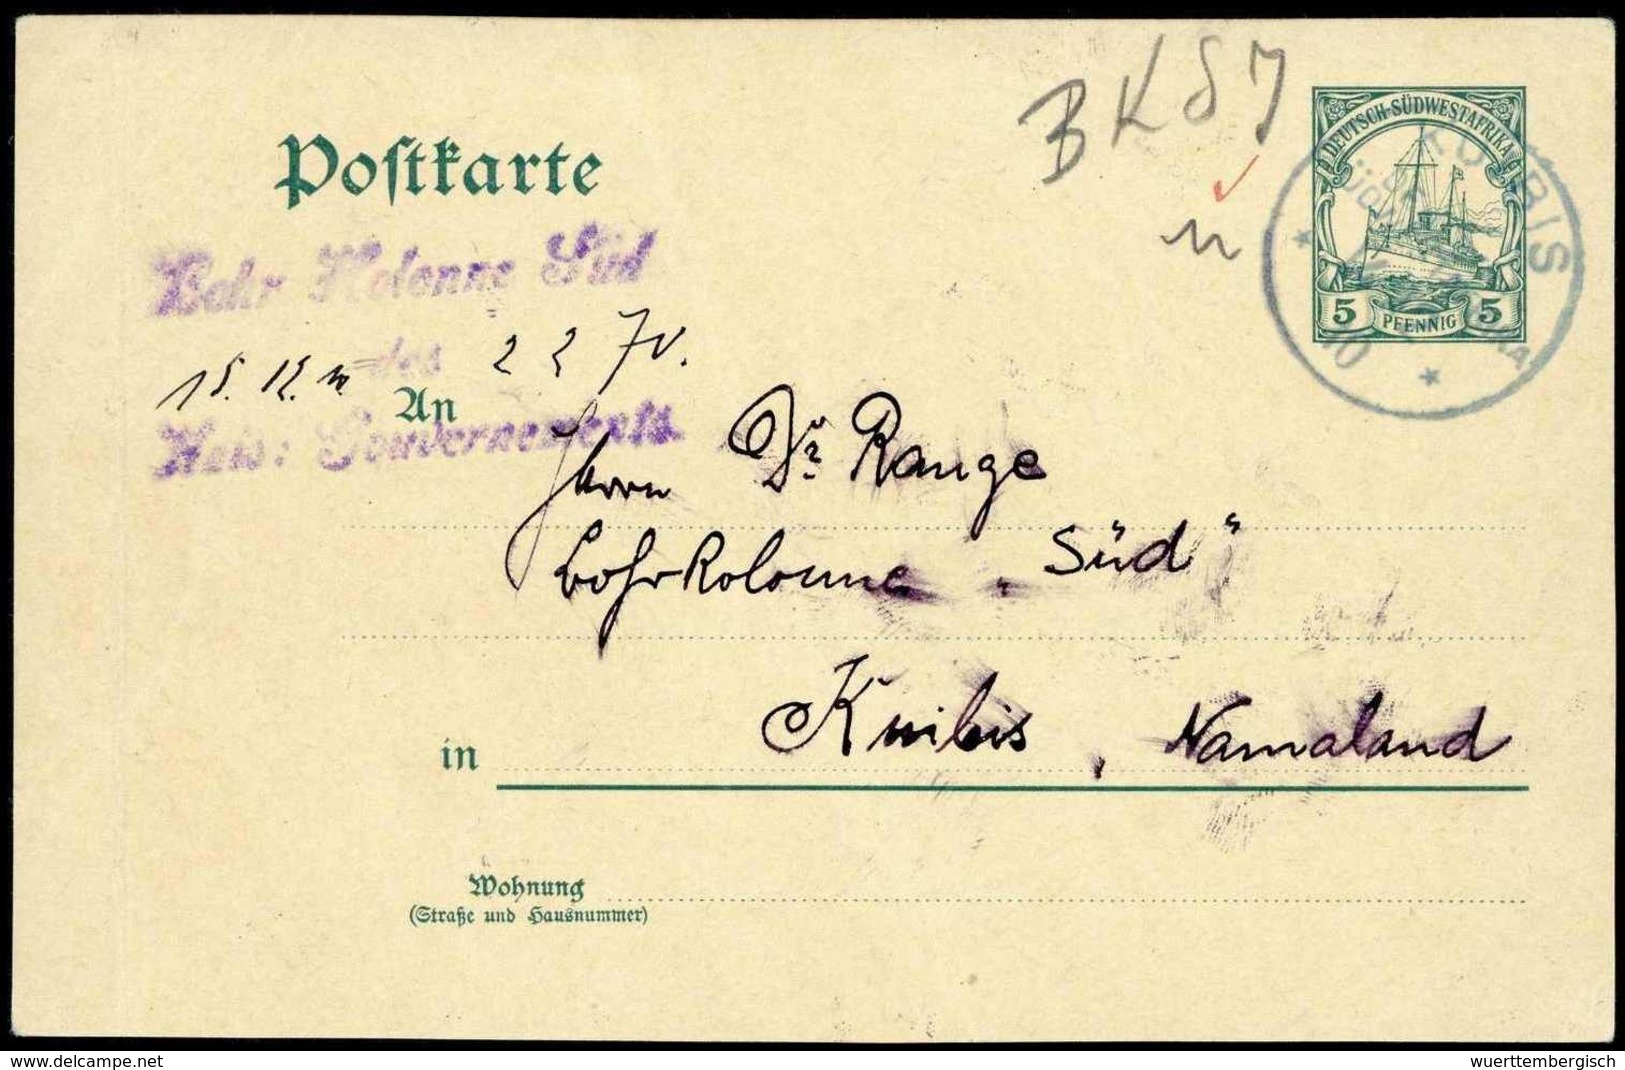 BKSJ
DEUTSCH-SÜDWESTAFRIKA
5 PFENNIG 5
Postkarte
Bohr Kolonne Süd
des
15.12.10 2270.
An
Kais: Gouvernements
Herrn Dr Range
Bohrkolonne „Süd“
in Kuibis, Namaland
Wohnung
(Straße und Hausnummer)
www.delcampe.net
wuerttembergisch